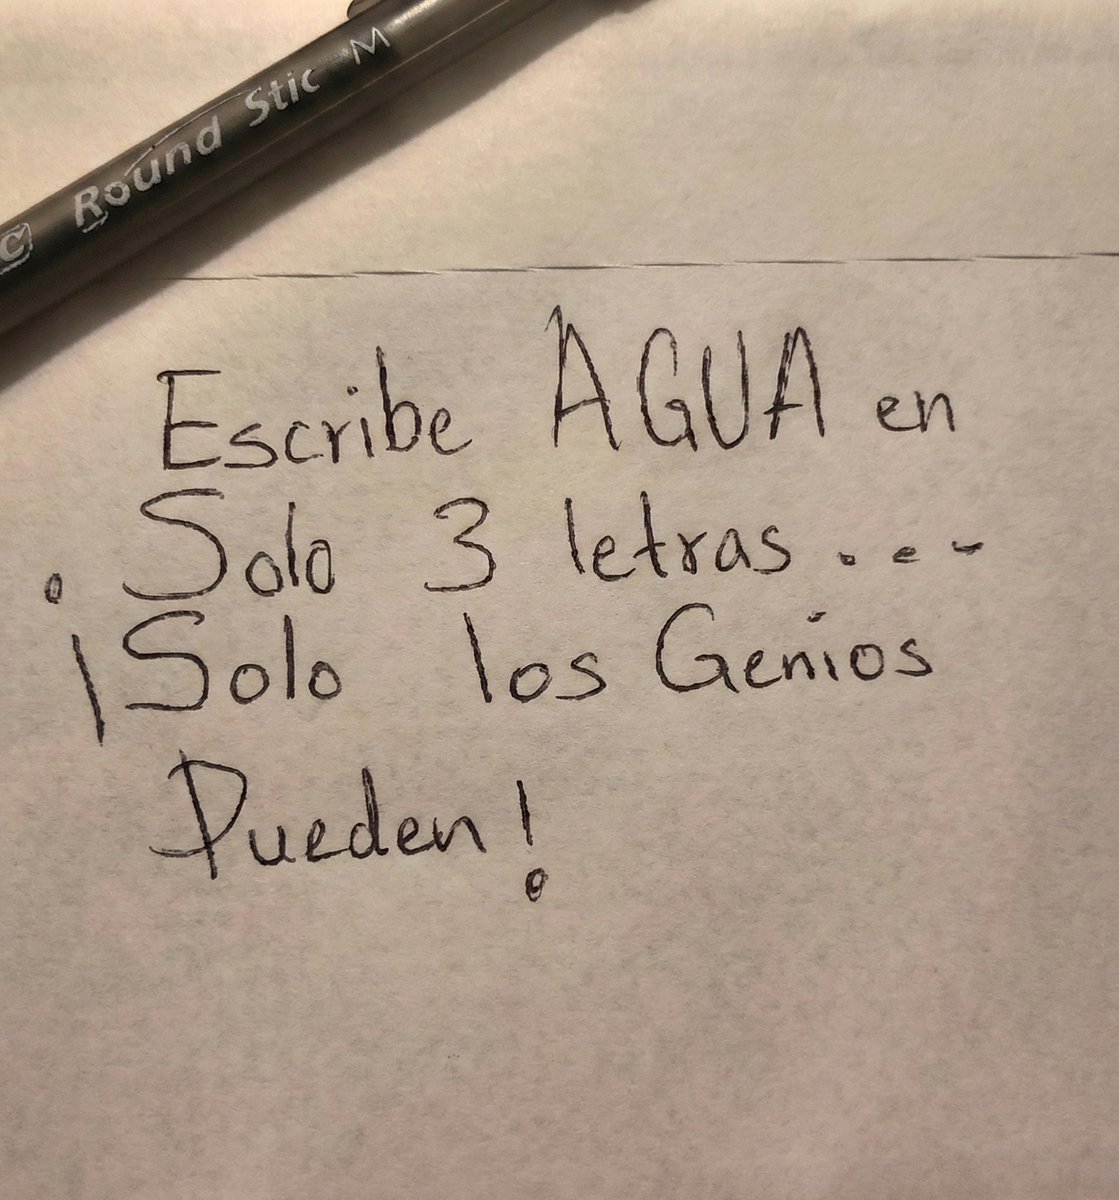 C Round Stic M
Escribe AGUA en
Solo 3 letras...
¡Solo los Genios
Pueden!